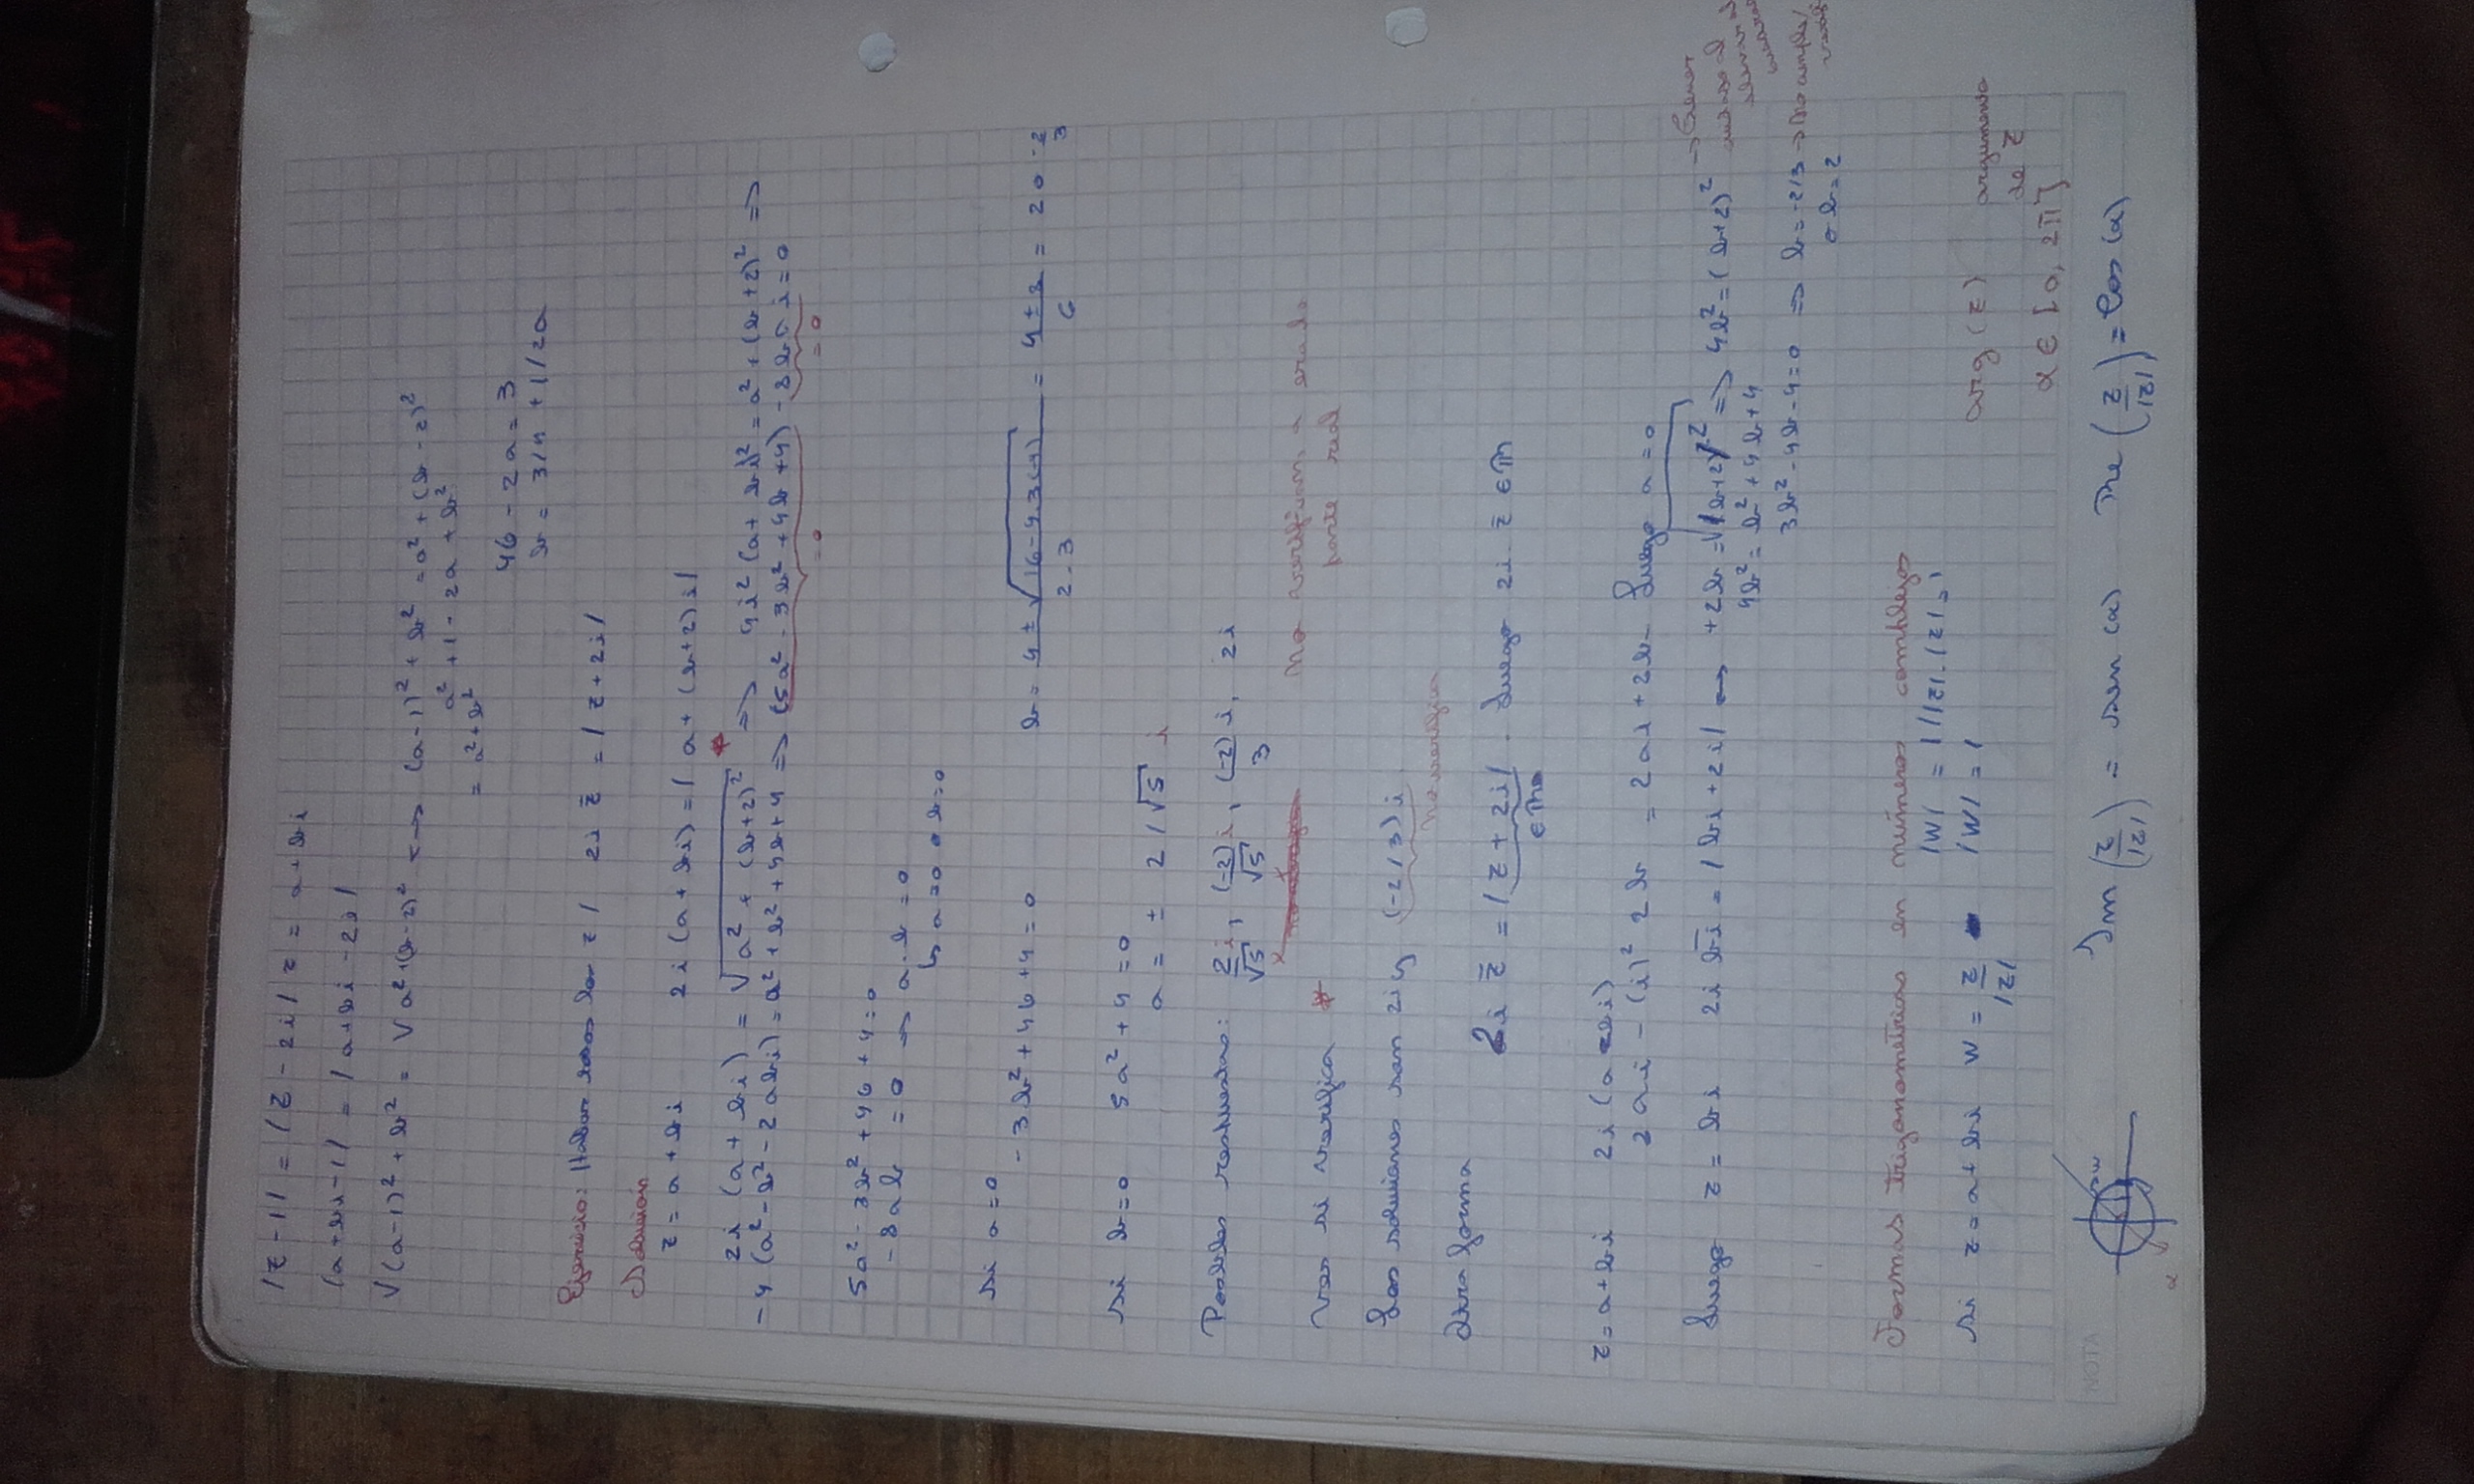 |z-1| = |z-2i| z = a+bi
|a+bi-1| = |a+bi-2i|
√(a-1)² + b² = √a²+(b-2)² <-> (a-1)² + b² = a² + (b-2)²
a² + 1 - 2a + b²
= a² + b²
4b - 2a = 3
b = 3/4 + 1/2a
Ejercicio: Hallar todos los z / 2i z̄ = |z+2i|
Solución
z = a + bi 2i (a + bi) = | a + (b+2) i|
2i (a + bi) = √a² + (b+2)² * => 4i² (a + bi)² = a² + (b+2)² =>
-4 (a² - b² - 2abi) = a² + b² + 4b + 4 => (5a² - 3b² + 4b + 4) - 8ba i = 0
= 0 = 0
5a² - 3b² + 4b + 4 = 0
-8ab = 0 => a.b = 0
↳ a=0 o b=0
Si a=0
-3b² + 4b + 4 = 0 b = 4 ± √16-4.3(-4) / 2.3 = 4 ± 8 / 6 = 2 o -2/3
Si b=0 5a² + 4 = 0
a = ± 2/√5 i
Posibles respuestas: 2/√5 i, (-2)/√5 i, (-2)/3 i, 2i
No verifican, a era la
parte real
Ves si verifica *
Las soluciones son 2i y (-2/3)i
No verifica
Otra forma
2i z̄ = |z + 2i|. Luego 2i. z̄ ∈ ℝ
∈ ℝ≥0
z = a+bi 2i (a - bi)
2ai - (i)² 2b = 2ai + 2b Luego a = 0
Luego z = bi 2i b̄ī = |bi + 2i| <-> +2b = √(b+2)² => 4b² = (b+2)² -> Tener
cuidado al
elevar al
4b² = b² + 4b + 4
3b² - 4b - 4 = 0 => b = -2/3 -> No cumple/
o b = 2
Formas trigonometricas en números complejos
|W| = 1/|z|.|z| = 1
Si z = a + bi W = z/|z| |W| = 1
arg (z) argumento
de z
α ∈ [0, 2π]
NOTA
w
α
Im (z/|z|) = sen (α) Re (z/|z|) = Cos (α)